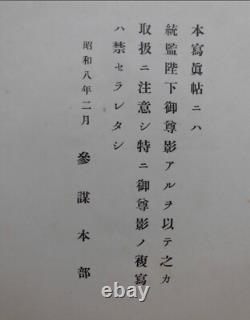 本寫眞帖ニハ
統監陛下御尊影アルヲ以テ之カ
取扱ニ注意シ特ニ御尊影ノ複寫
ハ禁セラレタシ
昭和八年二月
參謀本部
© worthpoint.com